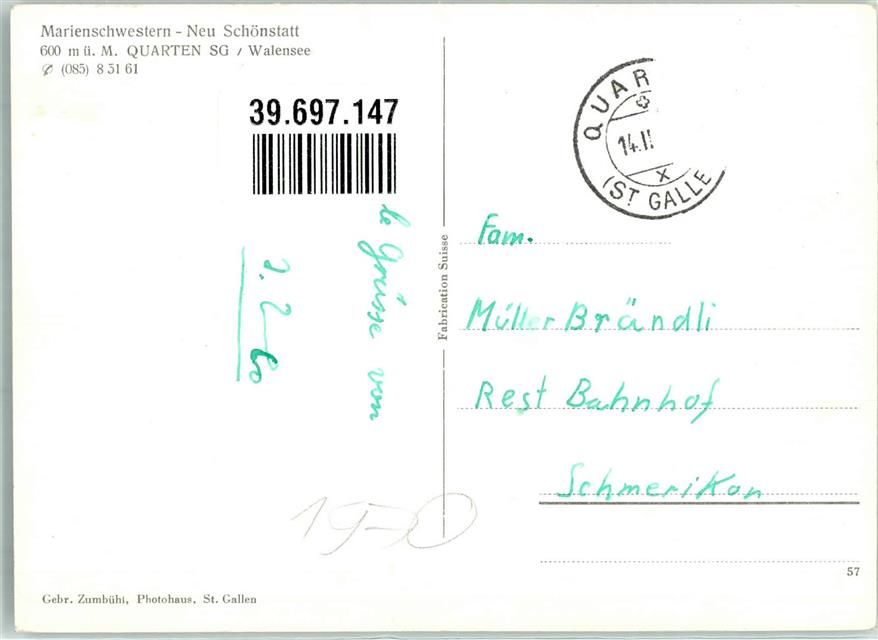 Marienschwestern - Neu Schönstatt
600 m ü. M. QUARTEN SG / Walensee
✆ (085) 8 51 61
39.697.147
QUAR
14.II
X
(ST GALLE
le Grüsse von
Fabrication Suisse
Fam.
Müller Brändli
Rest Bahnhof
Schmerikon
1970
57
Gebr. Zumbühl, Photohaus, St. Gallen